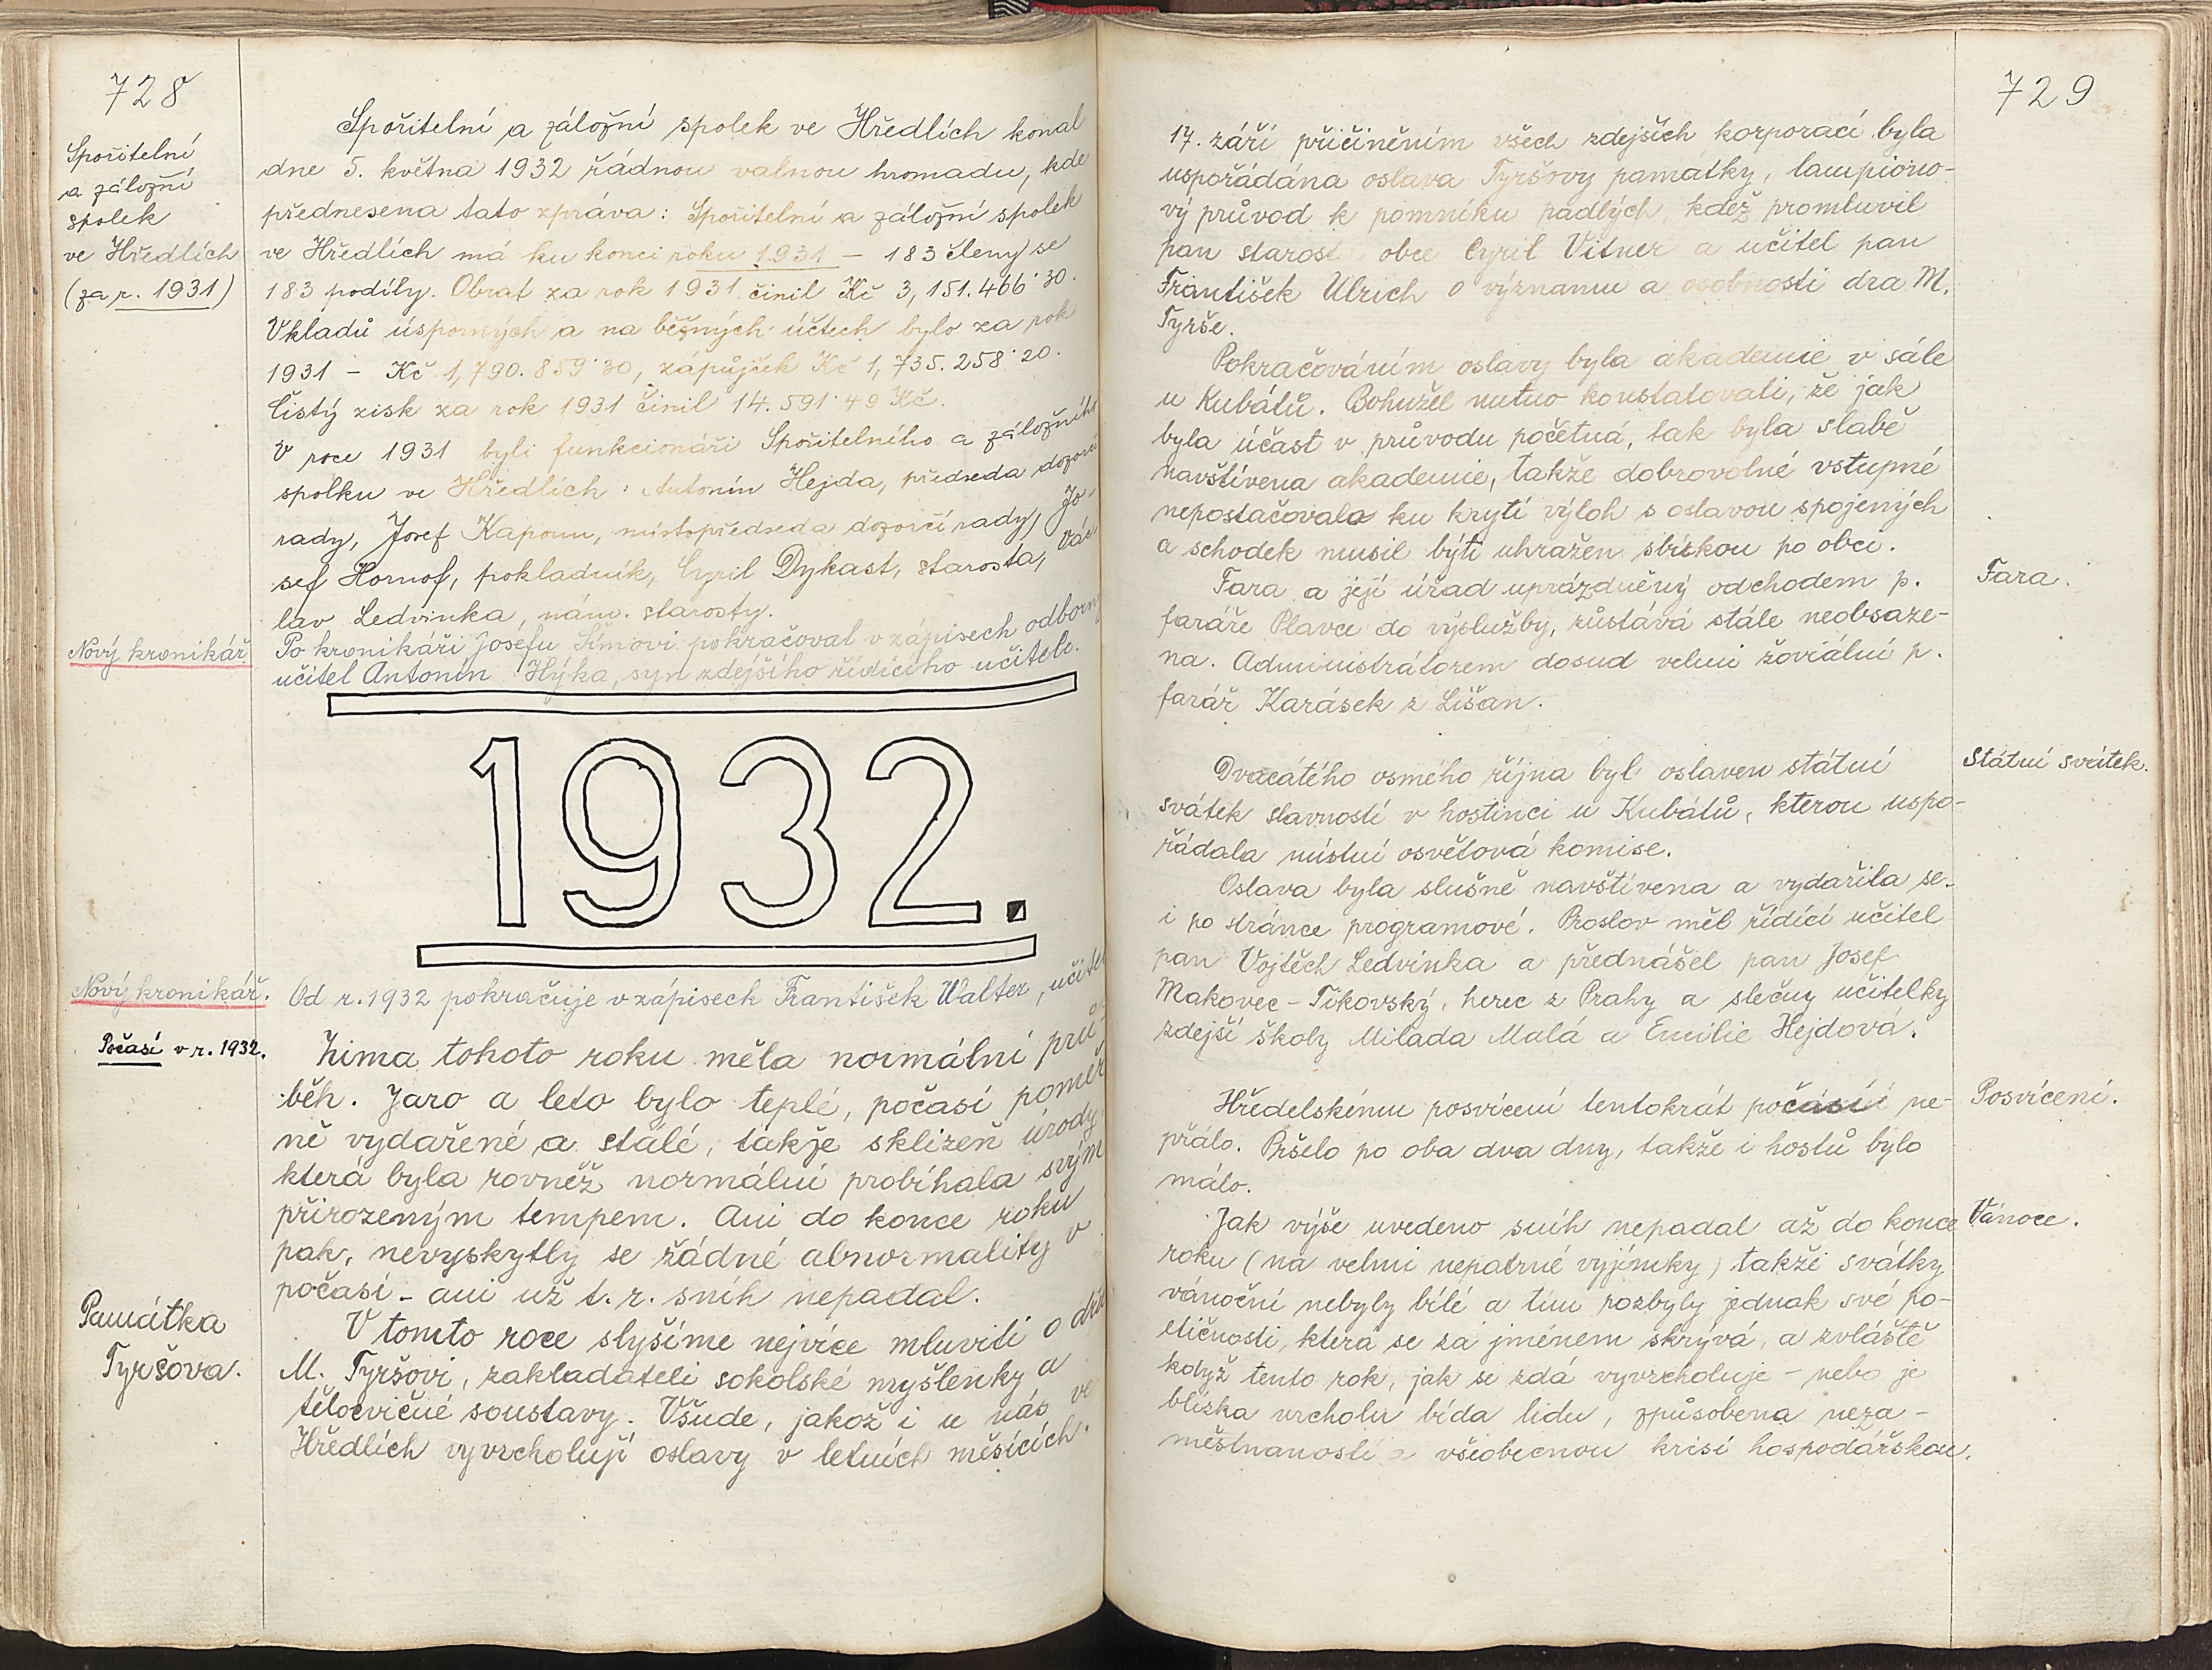 728
Spořitelní
a záložní
spolek
ve Hředlích
(za r. 1931)
Spořitelní a záložní spolek ve Hředlích konal
dne 5. května 1932 řádnou valnou hromadu, kde
přednesena tato zpráva: Spořitelní a záložní spolek
ve Hředlích má ku konci roku 1931 – 183 členy se
183 podíly. Obrat za rok 1931 činil Kč 3,151.466˙30.
Vkladů úsporných a na běžných účtech bylo za rok
1931 – Kč 1,790.859˙30, zápůjček Kč 1,735.258˙20.
Čistý zisk za rok 1931 činil 14.591˙49 Kč.
V roce 1931 byli funkcionáři Spořitelního a záložního
spolku ve Hředlích: Antonín Hejda, předseda dozorčí
rady, Josef Kapoun, místopředseda dozorčí rady, Jo-
sef Hornof, pokladník, Cyril Dykast, starosta, Vác-
lav Ledvinka, nám. starosty.
Nový kronikář.
Po kronikáři Josefu Šímovi pokračoval v zápisech odborný
učitel Antonín Hýka, syn zdejšího řídícího učitele.
1932.
Nový kronikář.
Od r. 1932 pokračuje v zápisech František Walter, učitel
Počasí v r. 1932.
Zima tohoto roku měla normální prů-
běh. Jaro a leto bylo teplé, počasí poměr
ně vydařené a stálé, takže sklizeň úrody
která byla rovněž normální probíhala svým
přirozeným tempem. Ani do konce roku
pak, nevyskytly se žádné abnormality v
počasí – ani už t. r. sníh nepadal.
Památka
Tyršova.
V tomto roce slyšíme nejvíce mluviti o dru
M. Tyršovi, zakladateli sokolské myšlenky a
tělocvičné soustavy. Všude, jakož i u nás ve
Hředlích vyvrcholují oslavy v letních měsících.
729
17. září přičiněním všech zdejších korporací byla
uspořádána oslava Tyršovy památky, lampiono-
vý průvod k pomníku padlých, kdež promluvil
pan starosta obce Cyril Vitner a učitel pan
František Ulrich o významu a osobnosti dra M.
Tyrše.
Pokračováním oslavy byla akademie v sále
u Kubátů. Bohužel nutno konstatovati, že jak
byla účast v průvodu početná, tak byla slabě
navštívena akademie, takže dobrovolné vstupné
nepostačovalo ku krytí výloh s oslavou spojených
a schodek musil býti uhražen sbírkou po obci.
Fara.
Fara a její úřad uprázdněný odchodem p.
faráře Plavce do výslužby, zůstává stále neobsaze-
na. Administrátorem dosud velmi žoviální p.
farář Karásek z Lišan.
Státní svátek.
Dvacátého osmého října byl oslaven státní
svátek slavností v hostinci u Kubátů, kterou uspo-
řádala místní osvětová komise.
Oslava byla slušně navštívena a vydařila se
i po stránce programové. Proslov měl řídící učitel
pan Vojtěch Ledvinka a přednášel pan Josef
Makovec – Tikovský, herec z Prahy a slečny učitelky
zdejší školy Milada Malá a Emilie Hejdová.
Posvícení.
Hředelskému posvícení tentokrát počasí ne-
přálo. Pršelo po oba dva dny, takže i hostů bylo
málo.
Vánoce.
Jak výše uvedeno sníh nepadal až do konce
roku (na velmi nepatrné vyjímky) takže svátky
vánoční nebyly bílé a tím pozbyly jednak své po-
etičnosti, která se za jménem skrývá, a zvláště
když tento rok, jak se zdá vyvrcholuje – nebo je
blízka vrcholu bída lidu, způsobena neza-
městnaností a všeobecnou krisí hospodářskou.